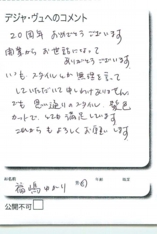 デジャ・ヴュへのコメント
20周年 おめでとうございます
開業から お世話になって
ありがとうございます
いつも スタイルしか 無理を言って
していただいて 申しわけありません
でも 思い通りのスタイル、髪色
カットで、とても満足しています
これからも よろしく お願いします
お名前
福嶋ゆかり
公開不可